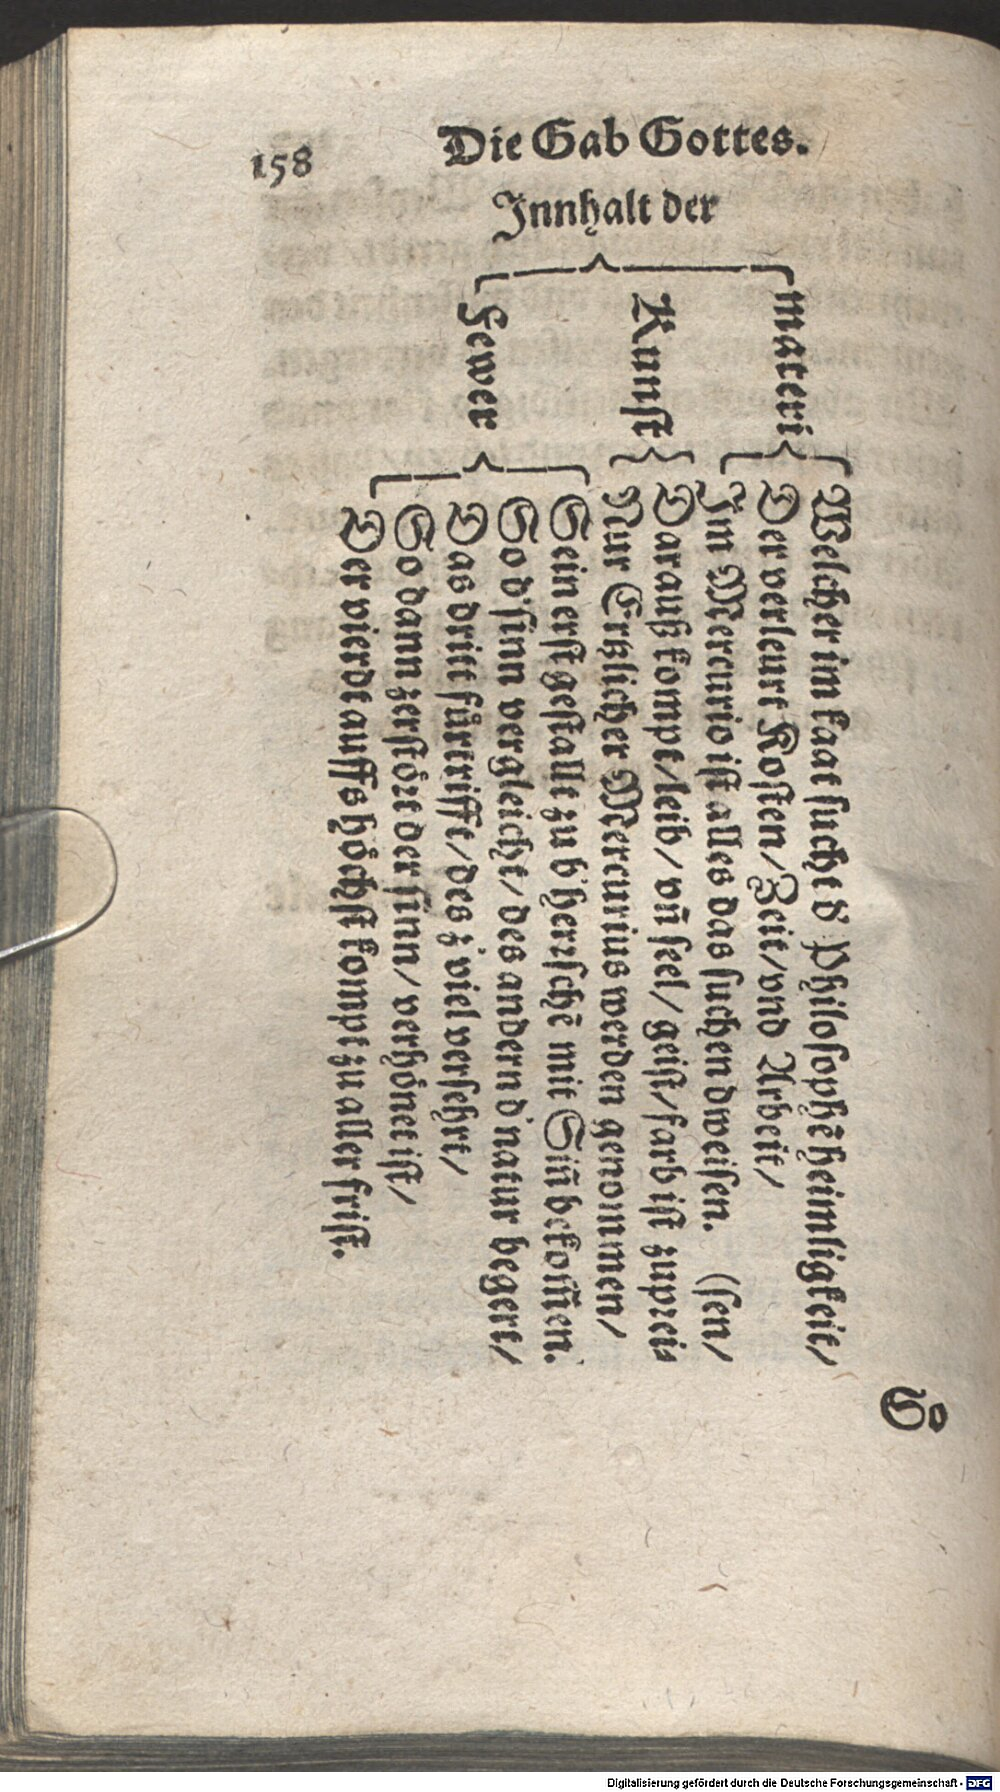 158
Die Gab Gottes.
Innhalt der
materi
Welcher im kaat sucht d' Philosophē heimligkeit/
Der verleurt Kosten/Zeit/vnd Arbeit/
Im Mercurio ist alles das suchend weisen. (sen/
Kunst
Darauß kompt/leib/vñ seel/geist/farb ist zuprei⸗
Nur Ertzlicher Mercurius werden genommen/
Fewer
Sein erst gestallt zu d' herrschē mit Siñ bekom̃en.
So d' sinn vergleicht/des andern d' natur begert/
Das dritt fürtrifft/des z' viel versehrt/
So dann zerstört der sinn/verhönet ist/
Der vierdt auffs höchst kompt zu aller frist.
So
Digitalisierung gefördert durch die Deutsche Forschungsgemeinschaft - DFG